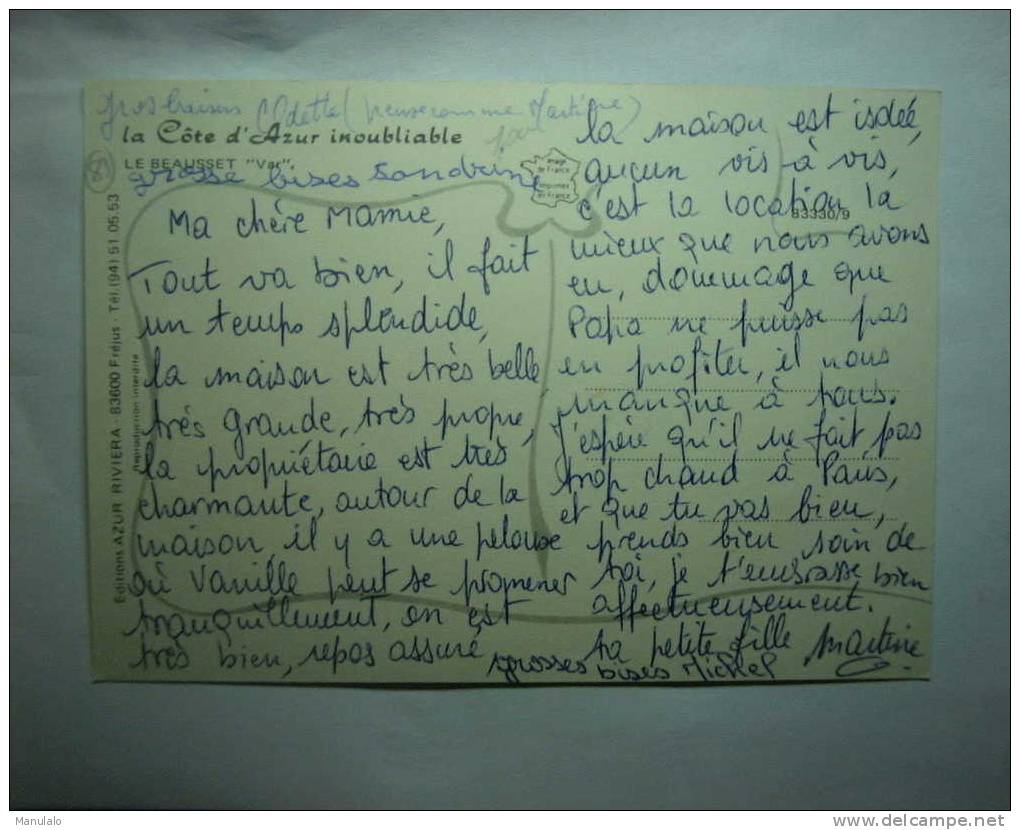 gros baisers Odette (pense comme Martine)
la Côte d'Azur inoubliable
LE BEAUSSET "Var".
grosse bises Sandrine
Ma chère Mamie,
Tout va bien, il fait
un temps splendide,
la maison est très belle
très grande, très propre,
la propriétaire est très
charmante, autour de la
maison, il y a une pelouse
où Vanille peut se promener
tranquillement, on est
très bien, repos assuré,
la maison est isolée,
aucun vis-à vis,
c'est la location la
mieux que nous avons
eu, dommage que
Papa ne puisse pas
en profiter, il nous
manque à tous.
J'espère qu'il ne fait pas
trop chaud à Paris,
et que tu vas bien,
prends bien soin de
toi, je t'embrasse bien
affectueusement.
ta petite fille Martine
grosses bises Michel
83330/9
Editions AZUR RIVIERA - 83600 Fréjus - Tél. (94) 51.05.53
Reproduction interdite
Manulalo
delcampe.net